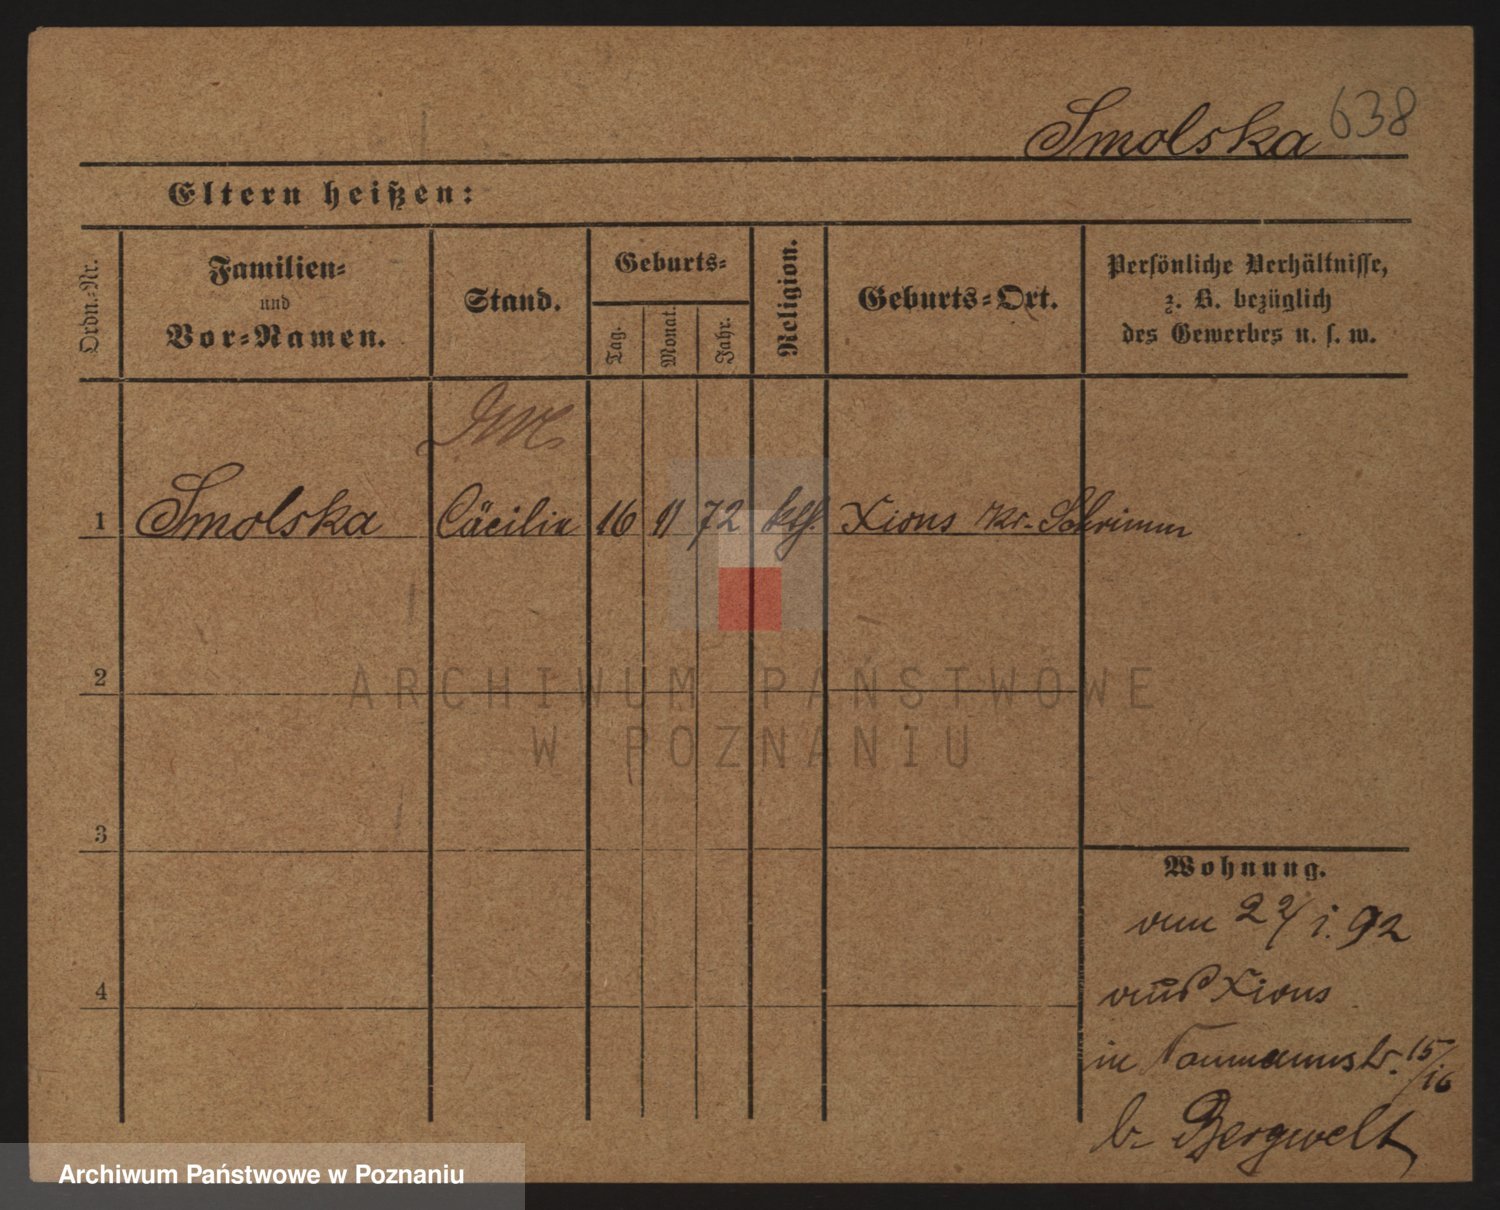 Smolska 638
Eltern heißen:
Ordn.-Nr.
Familien-
und
Vor-Namen.
Stand.
Geburts-
Tag.
Monat.
Jahr.
Religion.
Geburts-Ort.
Persönliche Verhältnisse,
z. B. bezüglich
des Gewerbes u. s. w.
1 Smolska Cäcilia 16 11 72 kth. Xions Kr. Schrimm
2
3
4
Wohnung.
vom 22/1. 92
aus Xions
in Naumannstr. 15/16
b. Bergwelt
ARCHIWUM PAŃSTWOWE
W POZNANIU
Archiwum Państwowe w Poznaniu